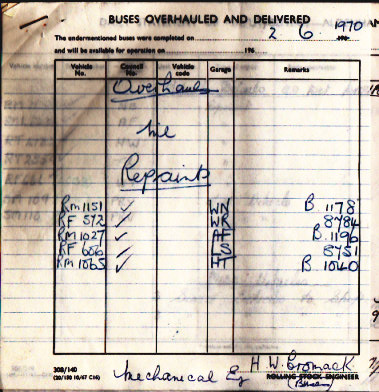 BUSES OVERHAULED AND DELIVERED
2 6 1970
The undermentioned buses were completed on
and will be available for operation on 196
Vehicle No. Council No. Vehicle code Garage Remarks
Overhauls
Nil
Repaints
RM 1151 ✓ WN B 1178
RF 572 ✓ WR 8784
RM 1027 ✓ AF B 1196
RF 606 ✓ LS 8751
RM 1065 ✓ HT B 1040
H W Cromack
Mechanical Eg ROLLING STOCK ENGINEER
308/140